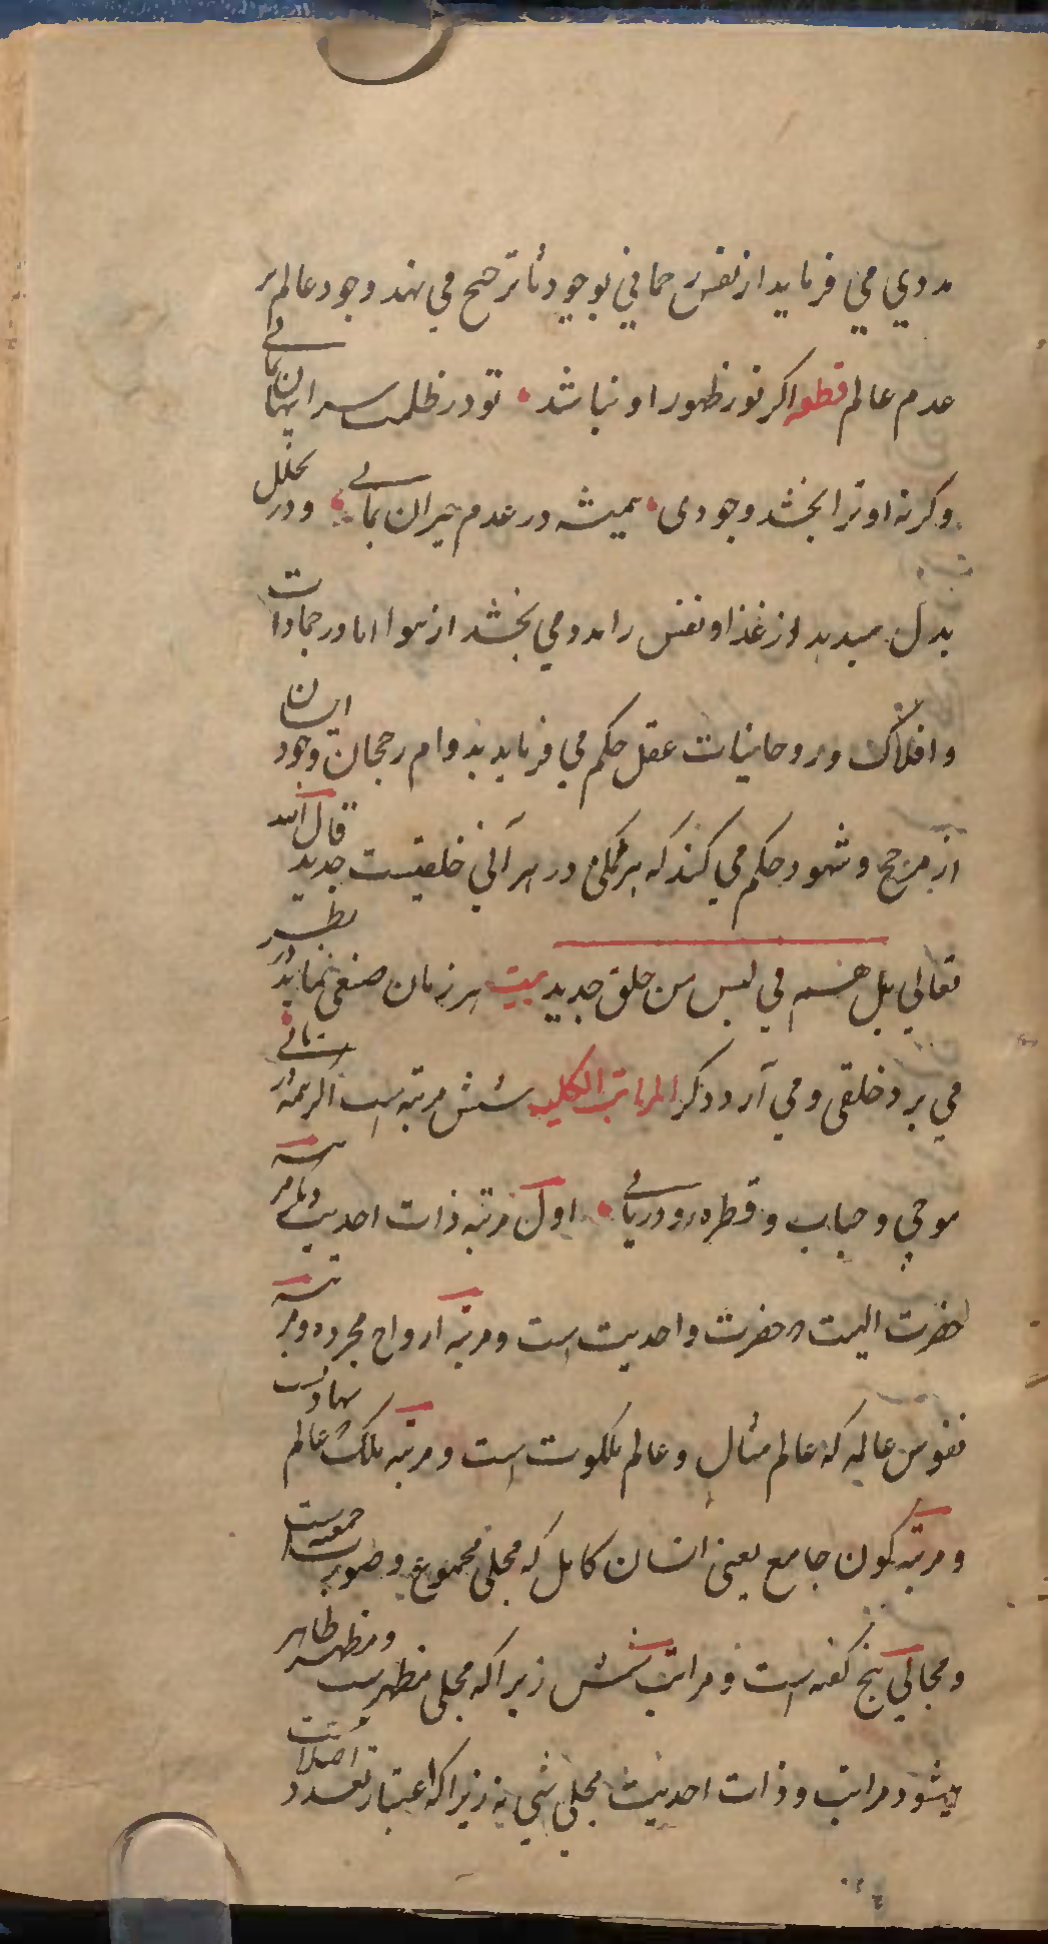 مددی می فرماید از نفس رحمانی بوجود تا ترجیح می نهد وجود عالم بر
عدم عالم قطعه اکر نور ظهور او نباشد تو در ظلمت سرا پنهان بمانی
وکرنه او ترا بخشد وجودی همیشه در عدم حیران بمانی ودر تحلل
بدل میدهد از غذا و نفس را مدد می بخشد از هوا اما در جمادات
وافلاک وروحانیات عقل حکم می فرماید بدوام رجحان وجود ایشان
از مرجح وشهود حکم می کند که هر ممکنی در هر آنی خلقیست جدید قال الله
تعالی بل هم فی لبس من خلق جدید بیت هر زمان صنعی نماید در نظر
می برد خلقی ومی آرد دکر المراتب الکلیه شش مرتبه است اکر همه در
موجی وحباب وقطره و دریائی اول مرتبه ذات احدیت ومرتبه
حضرت الهیت و حضرت واحدیت است ومرتبه ارواح مجرده ومرتبه
نفوس عالمه که عالم مثال وعالم ملکوت است ومرتبه ملک وعالم شهادتست
ومرتبه کون جامع یعنی انسان کامل که مجلی مجموع وصورت جمعیتست
ومجالی پنج کفته است ومراتب شش زیرا که مجلی مظهریست ومظهر ظاهر
میشود مراتب وذات احدیت مجلی شی نه زیرا که اعتبار تعدد اصلا